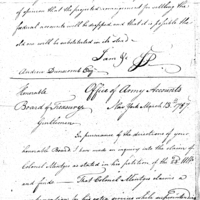 of opinion that the proposed arrangement for settling the
federal accounts will be dropped and that it is possible the
States will be substituted in its stead
I am &c
JP
Andrew Dunscomb Esqr
Office of Army Accounts
New York March 13th 1787
Honorable
Board of Treasury
Gentlemen
In pursuance of the directions of your
Honorable Board I have made an inquiry into the claims of
Colonel Mentges as stated in his petition of the
and finds — That Colonel Mentges claims a
for his extra services while